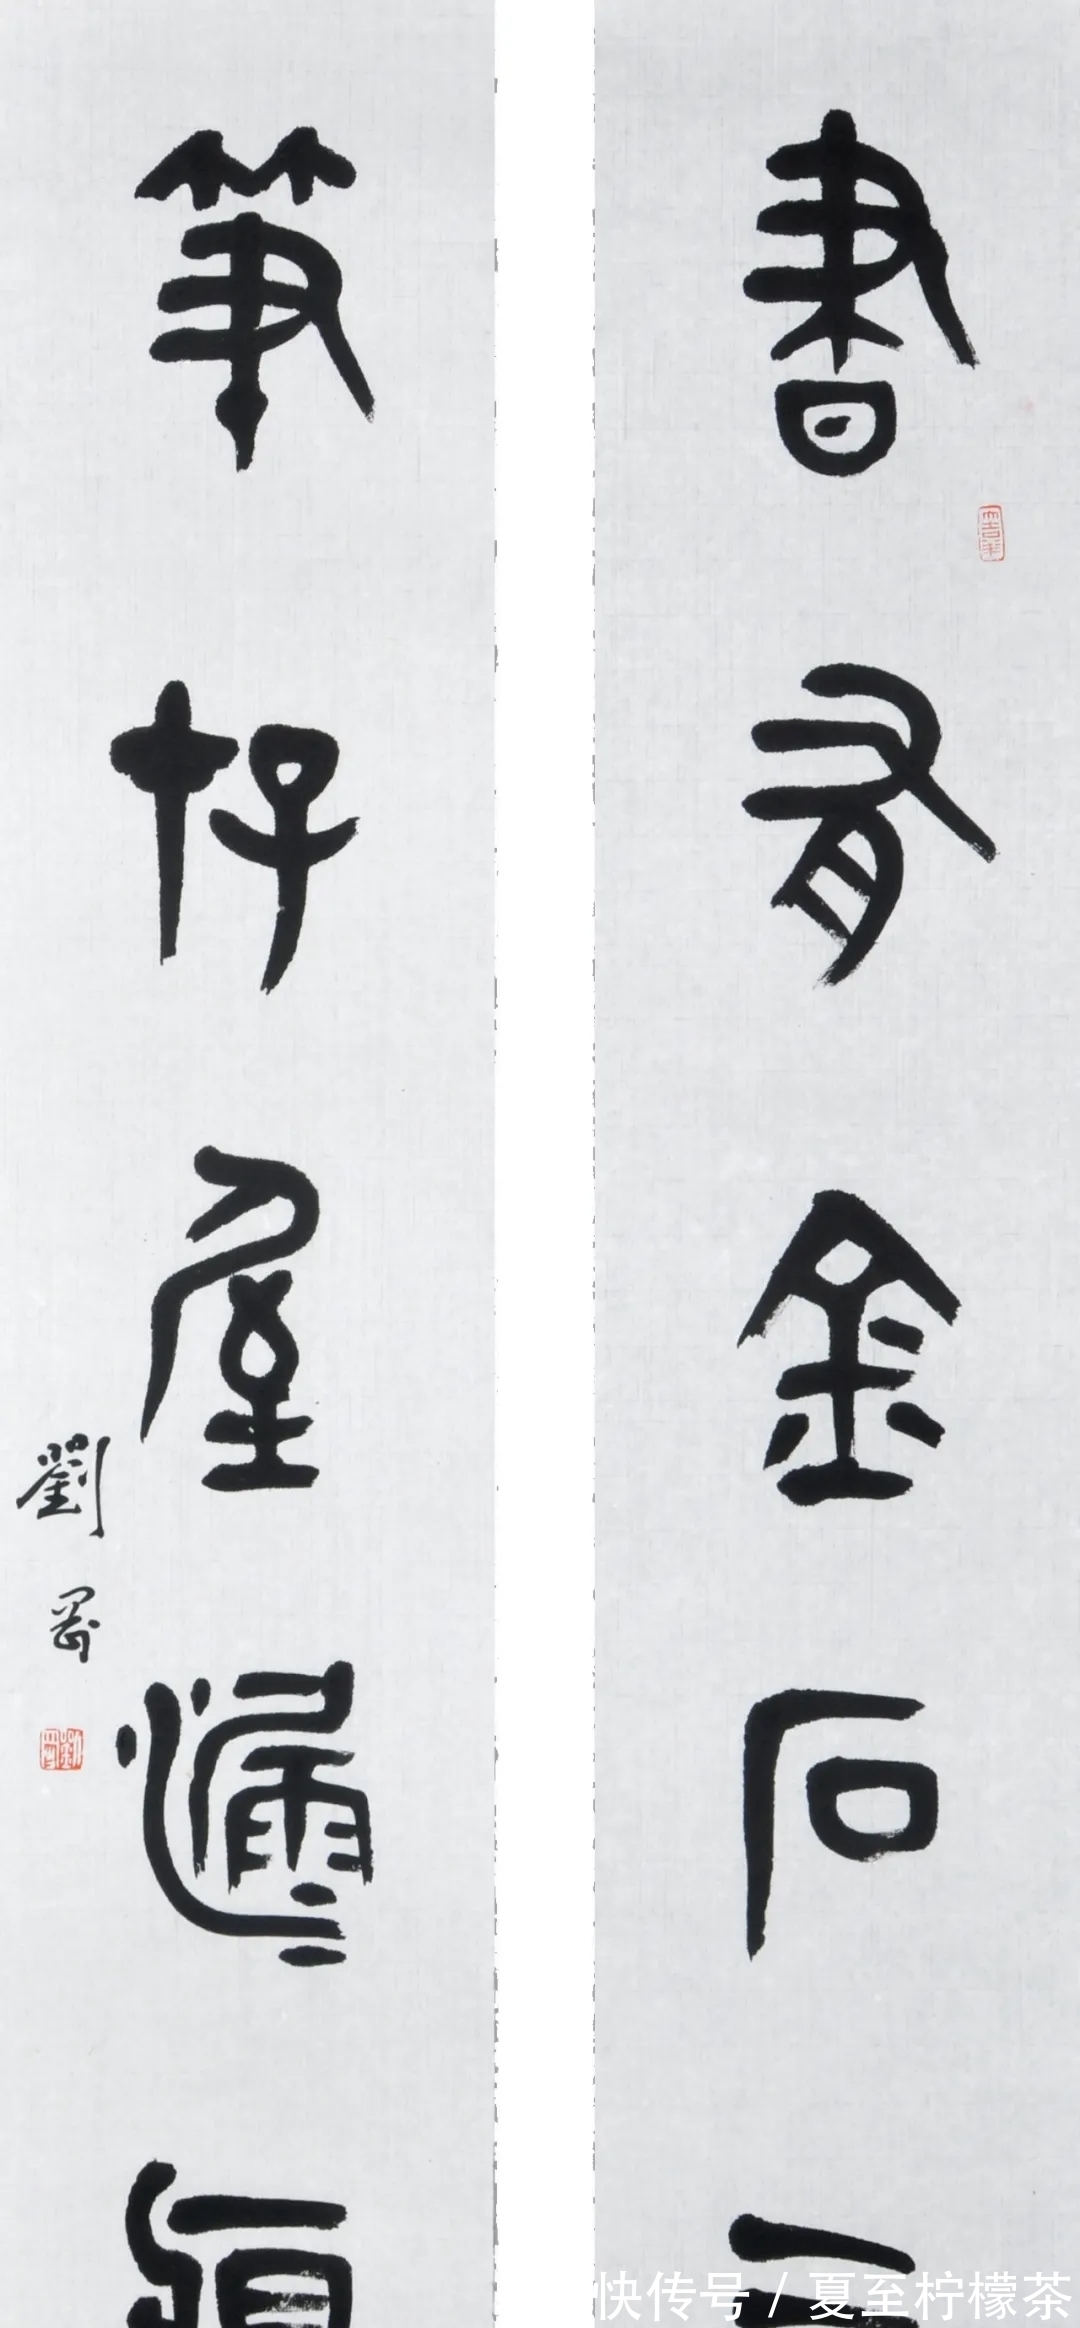 書有金石
筆存屋漏
劉
快传号 / 夏至柠檬茶